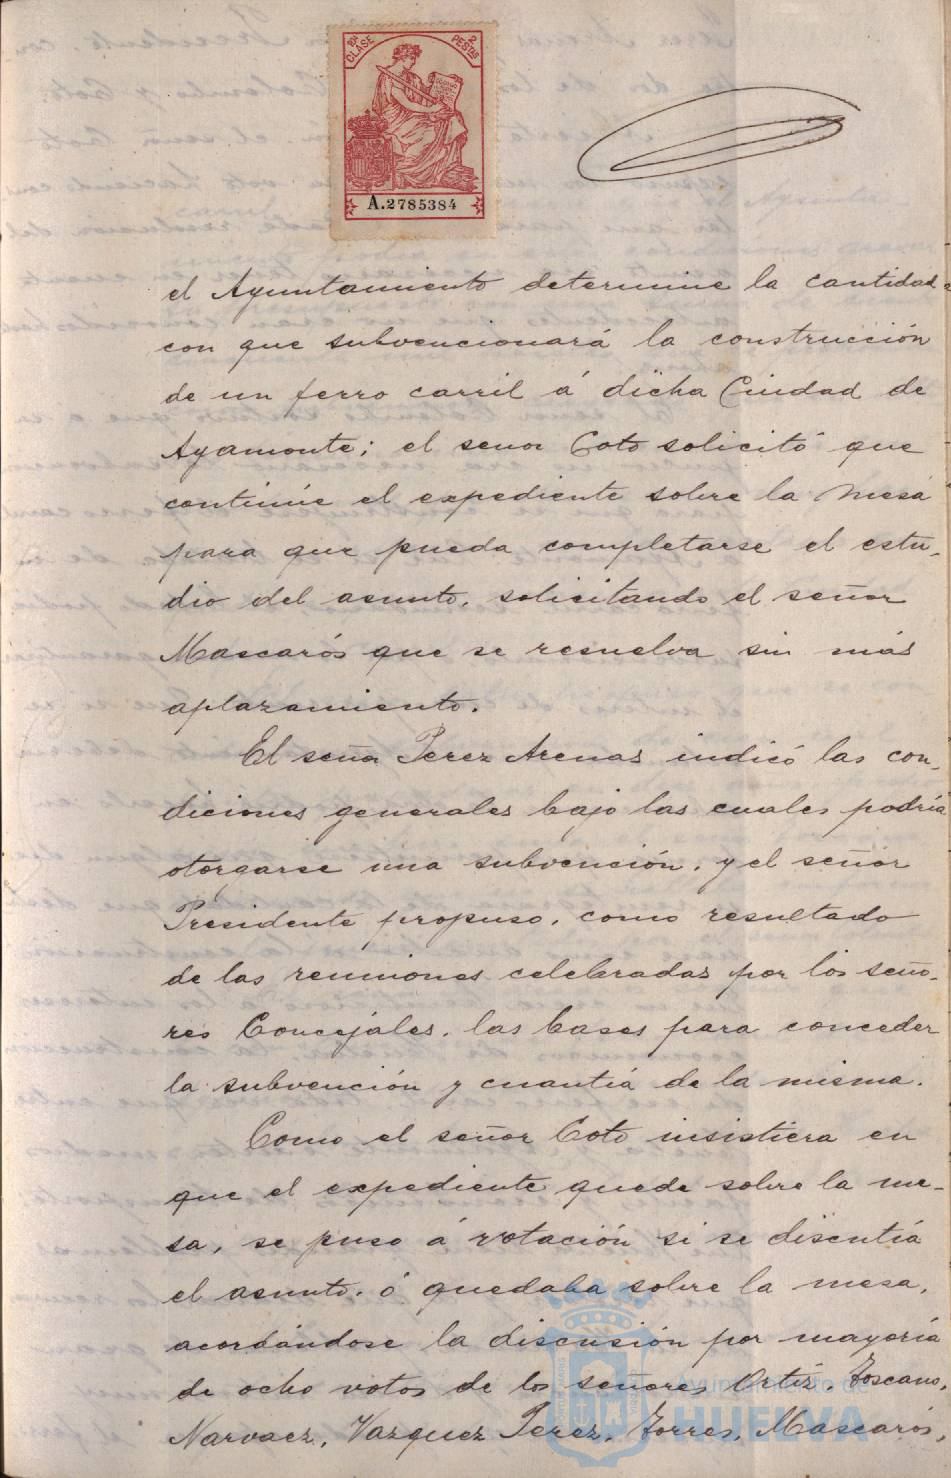 8ª CLASE 2 PESTAS
A.2785384
el Ayuntamiento determine la cantidad
con que subvencionará la construcción
de un ferro carril á dicha Ciudad de
Ayamonte; el señor Coto solicitó que
continúe el expediente sobre la mesa
para que pueda completarse el estu-
dio del asunto, solicitando el señor
Mascarós que se resuelva sin más
aplazamiento.
El señor Perez Arenas indicó las con-
diciones generales bajo las cuales podría
otorgarse una subvención, y el señor
Presidente propuso, como resultado
de las reuniones celebradas por los seño-
res Concejales, las bases para conceder
la subvención y cuantía de la misma.
Como el señor Coto insistiera en
que el expediente quede sobre la me-
sa, se puso á votación si se discutía
el asunto, ó quedaba sobre la mesa,
acordándose la discusión por mayoría
de ocho votos de los señores Ortiz, Toscano,
Narvaez, Vazquez Perez, Torres, Mascarós,
Ayuntamiento de
HUELVA